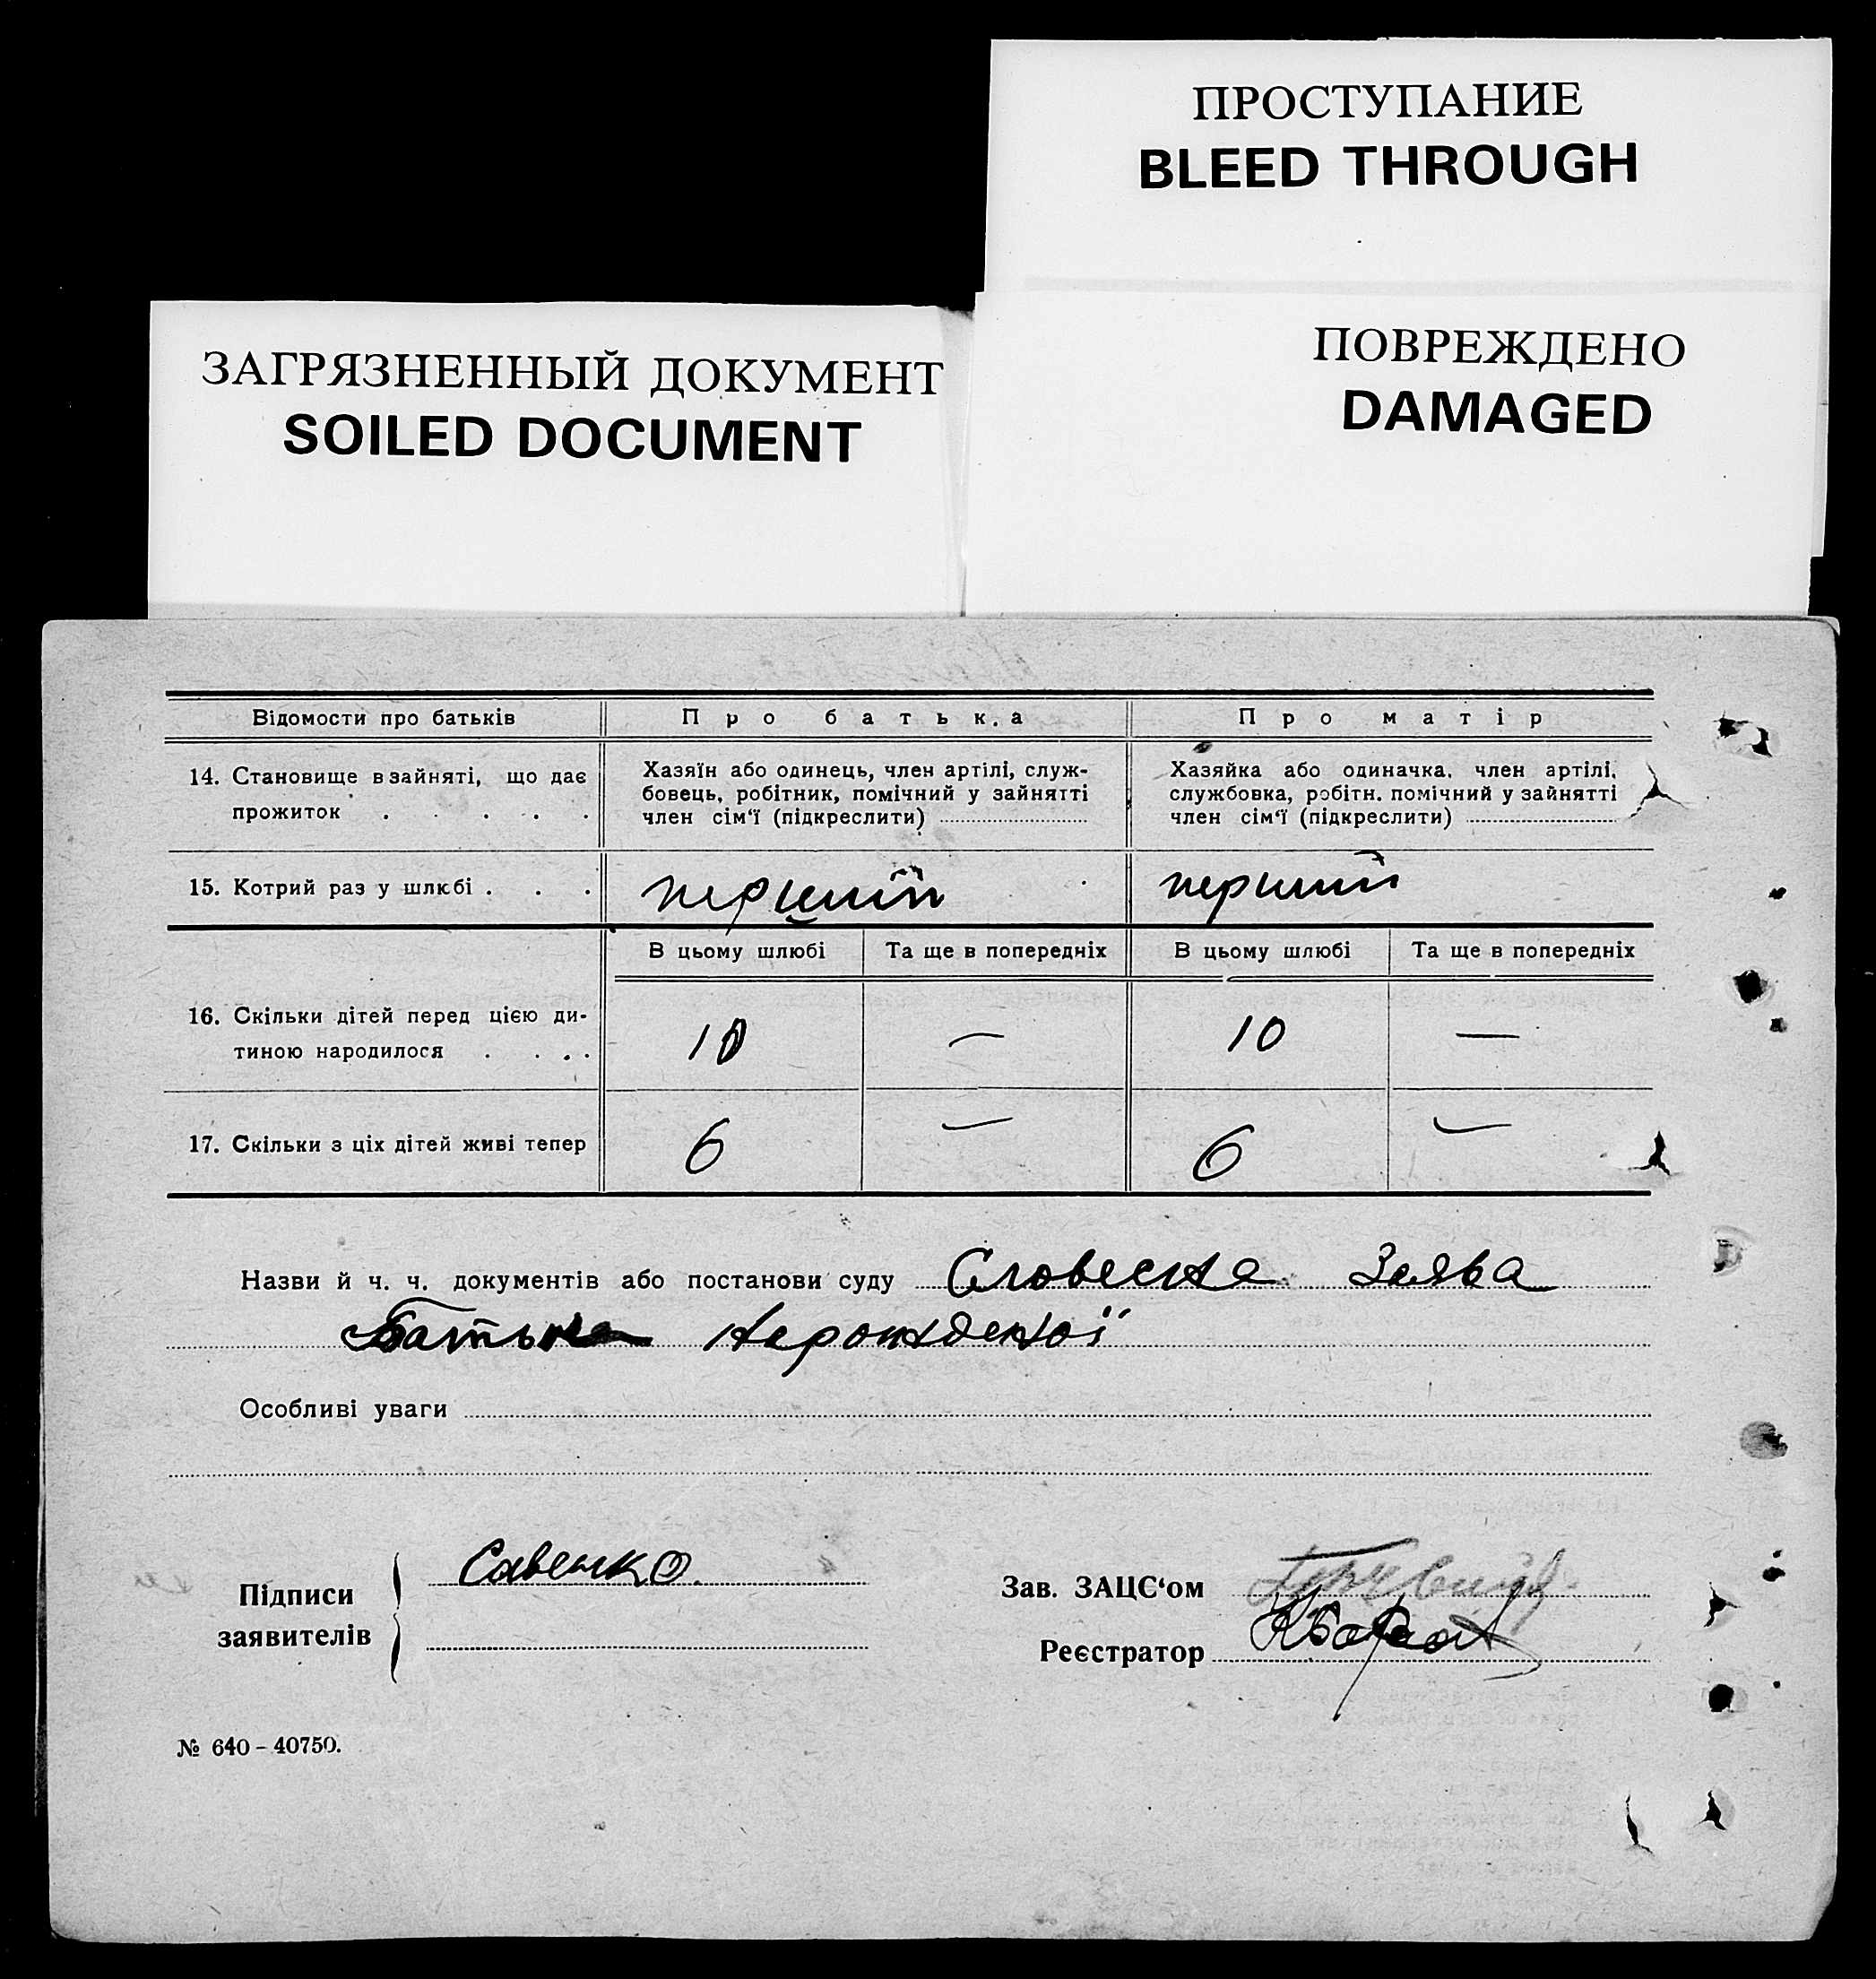 ПРОСТУПАНИЕ
BLEED THROUGH
ПОВРЕЖДЕНО
DAMAGED
ЗАГРЯЗНЕННЫЙ ДОКУМЕНТ
SOILED DOCUMENT
Відомости про батьків Про батька Про матір
14. Становище в зайняті, що дає
прожиток . . . . .
Хазяїн або одинець, член артілі, служ-
бовець, робітник, помічний у зайнятті
член сім‘ї (підкреслити)
Хазяйка або одиначка, член артілі,
службовка, робітн. помічний у зайнятті
член сім‘ї (підкреслити)
15. Котрий раз у шлюбі . . . перший перший
В цьому шлюбі Та ще в попередніх В цьому шлюбі Та ще в попередніх
16. Скільки дітей перед цією ди-
тиною народилося . . . . 10 — 10 —
17. Скільки з ціх дітей живі тепер 6 — 6 —
Назви й ч. ч. документів або постанови суду Словесна Заява
Батька нарожденої
Особливі уваги
Підписи
заявителів
Савенко
Зав. ЗАЦС‘ом
Реєстратор
№ 640 – 40750.